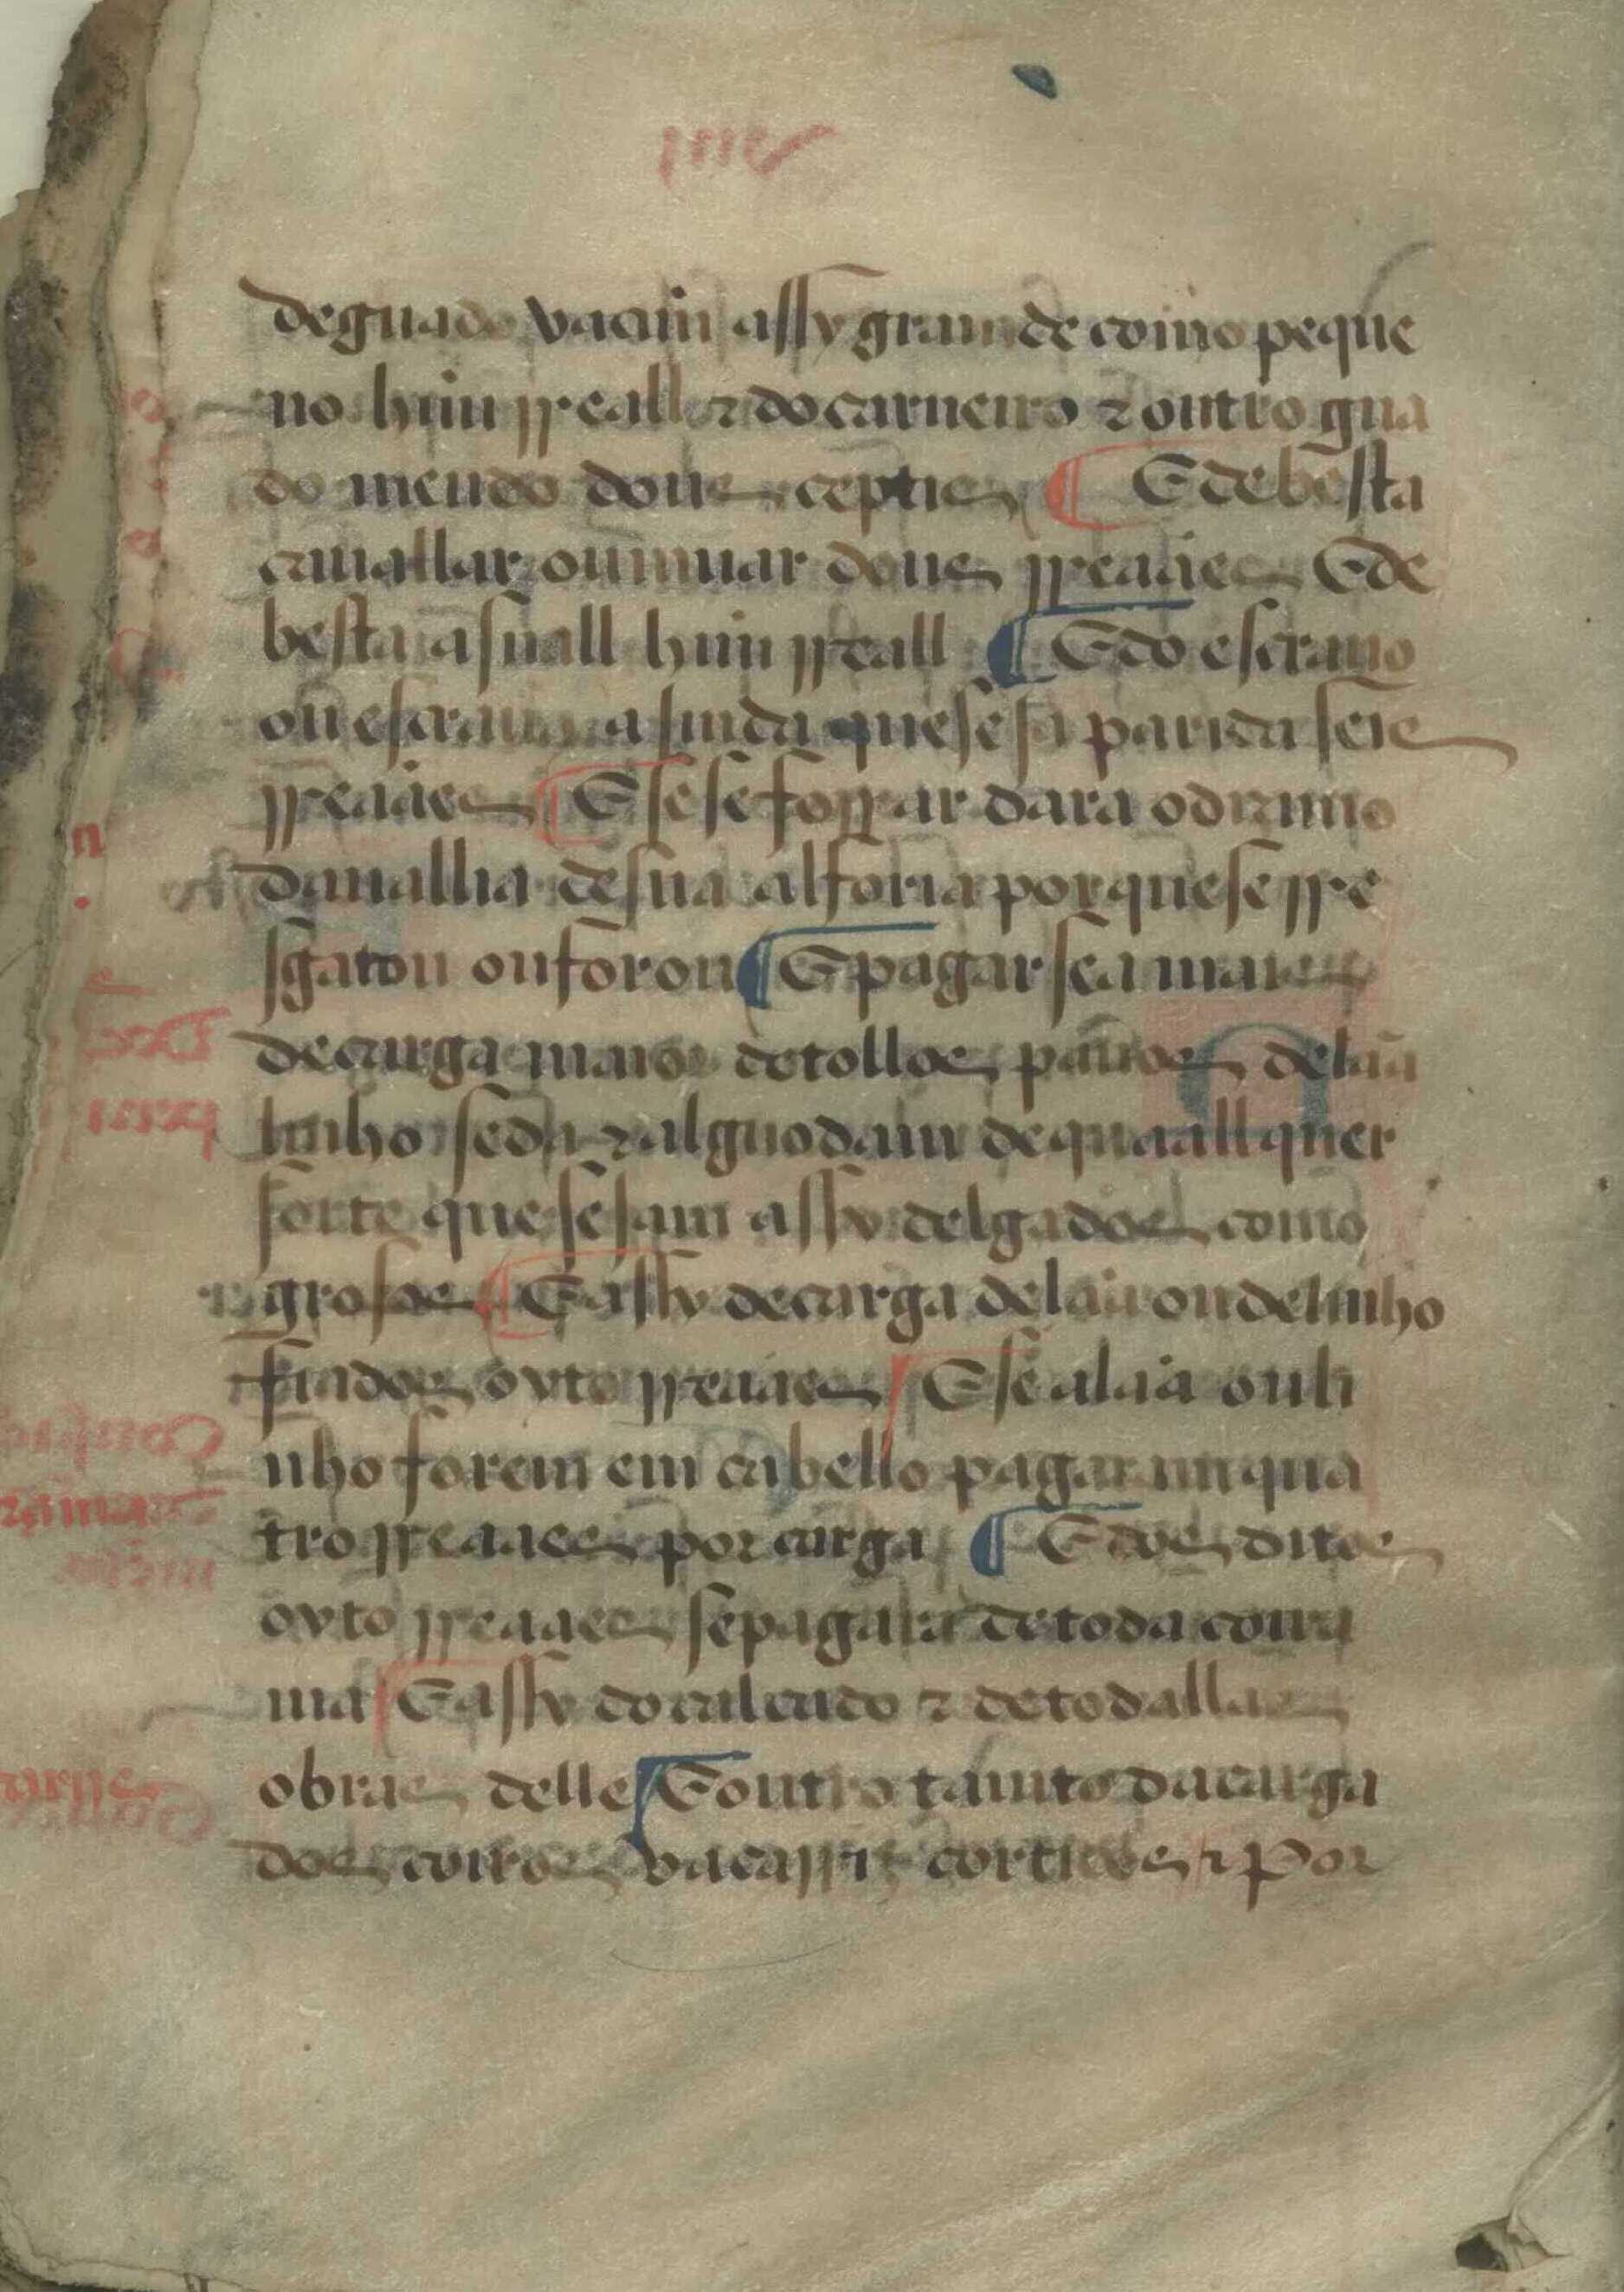 de guado vacuũ assy grannde como peque
no huũ rreall ⁊ do carneiro ⁊ outro gua
do meudo dous ceptis ¶ E de besta
cauallar ou muar dous rreaaes E de
besta asnall huũ rreall ¶ E do escrauo
ou escraua a jnda que seja parida seis
rreaaes ¶ E se se forrar dara o dizimo
da uallia de sua alforia por que se rre
sgatou ou forou ¶ E pagarsea mais
de carga maior de tollos panos de laã
linho seda ⁊ alguodam de quaall quer
sorte que sejam assy delgados como
grosos ¶ E assy de carga de laã ou de linho
fiados oyto rreaaes ¶ E se a laã ou li
nho forem em cabello pagaram qua
tro rreaaes por carga ¶ E os ditos
oyto rreaaes se pagara de toda coira
ma ¶ E assy do calcado ⁊ de todallas
obras delle ¶ E outro tamto da carga
dos coiros vacarriz cortidos ⁊ por